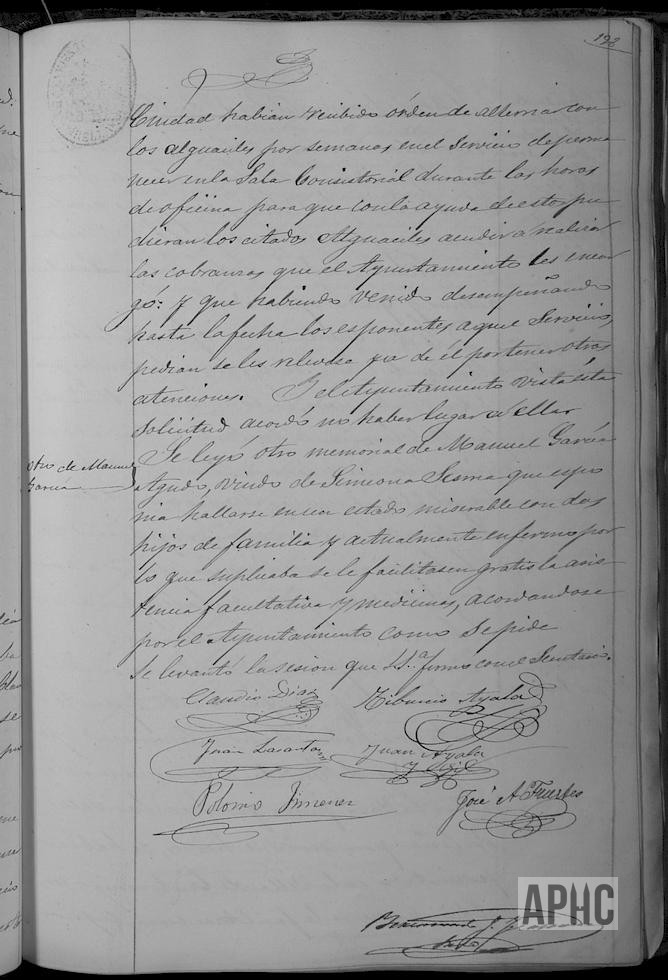 193
Ciudad habian recibido órden de alternar con
los alguaciles por semanas en el servicio de perma
necer en la Sala Consistorial durante las horas
de oficina para que con la ayuda de estos pu
dieran los citados Alguaciles acudir á realizar
las cobranzas que el Ayuntamiento les encar
gó: y que habiendo venido desempeñando
hasta la fecha los esponentes aquel servicio,
pedian se les relevase ya de él por tener otras
atenciones. Y el Ayuntamiento vista esta
solicitud acordó no haber lugar á ella.
Otro de Manuel
Garcia
Se leyó otro memorial de Manuel García
Agudo, viudo de Simeona Sesma que espo
nia hallarse en un estado miserable con dos
hijos de familia y actualmente enfermo por
lo que suplicaba se le facilitasen gratis la asis
tencia facultativa y medicinas, acordandose
por el Ayuntamiento como se pide
Se levantó la sesion que SS.ª firmó con el Secretario.
Claudio Diaz
Tiburcio Ayala
Juan
Juan Ayala
y Gil
Polonio Jimenez
José A. Fuertes
APHC